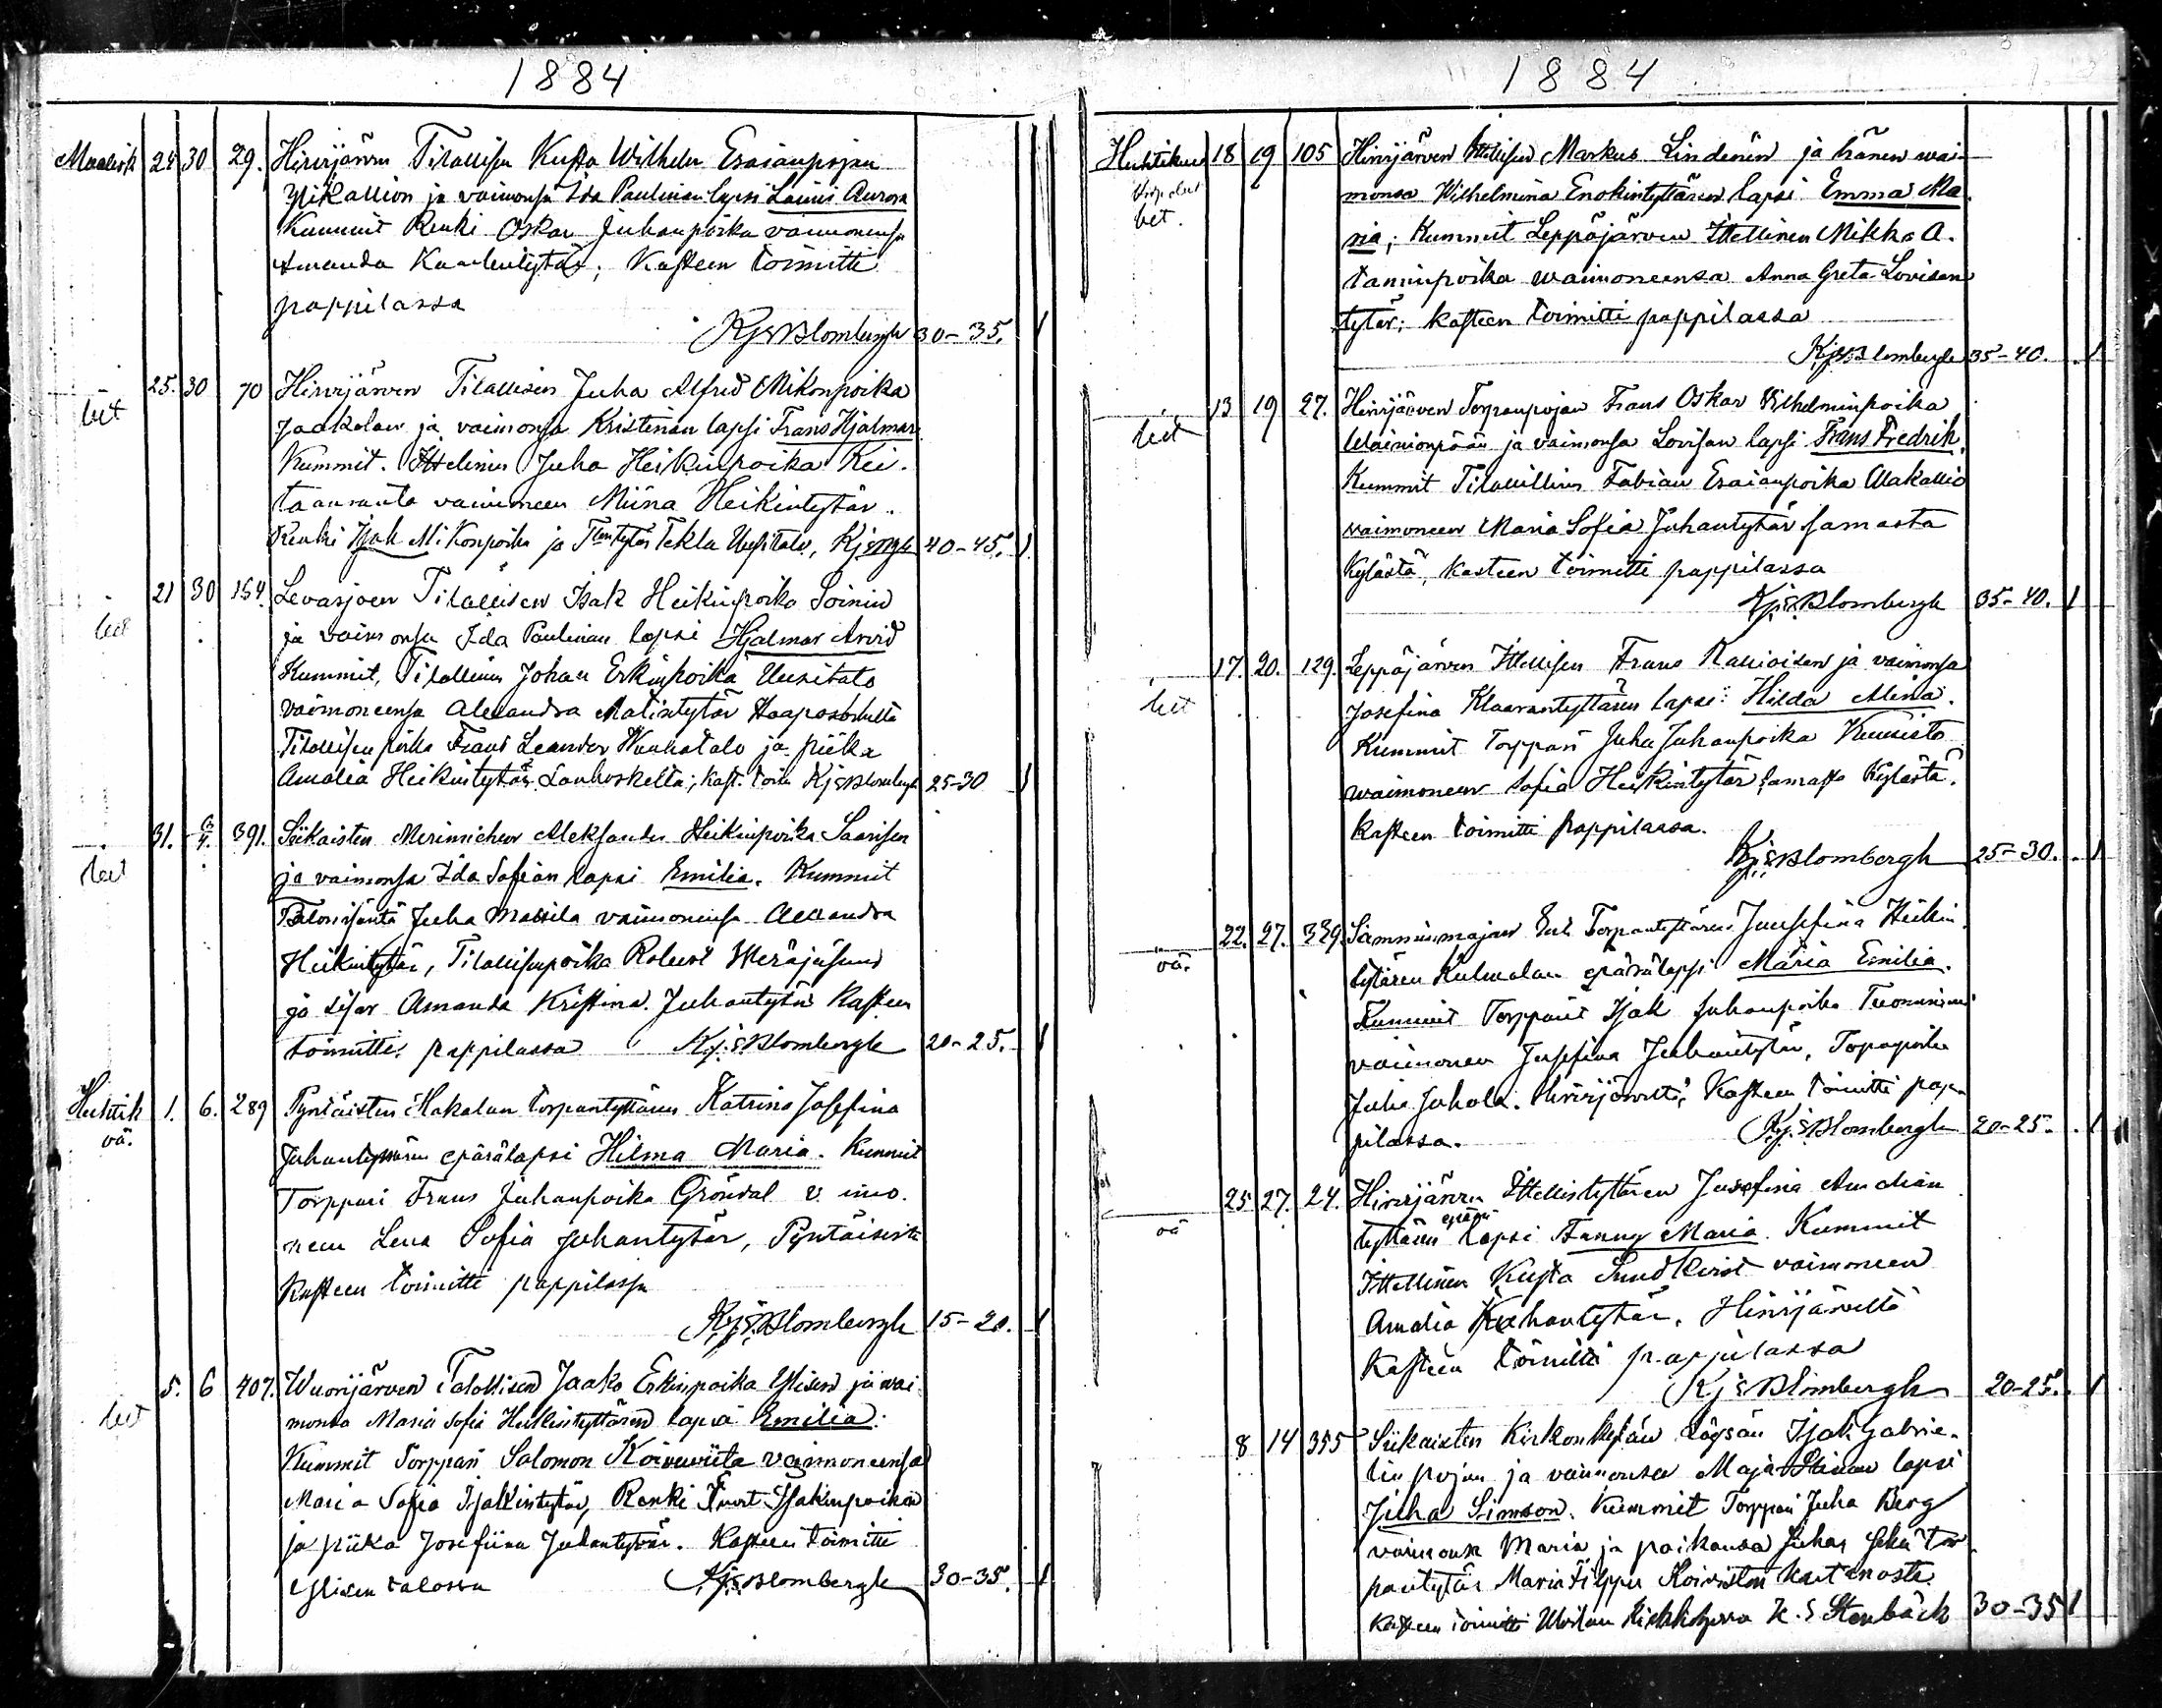 1884
Maalisk 24 30 29. Hirvijärven Tilallisen Kusta Wilhelm Esaianpojan
Ylikallion ja vaimonsa Ida Paulinan lapsi Laimi Aurora
Kummit Renki Oskar Juhanpoika vaimonensa
Amanda Kaarlentytär; Kasteen toimitti
pappilassa
KjEBlombergh 30-35. 1
25. 30 70 Hirvijärven Tilallisen Juha Alfred Mikonpoika
Jaakolan ja vaimonsa Kristinan lapsi Frans Hjalmar
Kummit. Ittellinen Juha Heikinpoika Kei-
taanranta vaimoneen Miina Heikintytär.
Renki Isak Mikonpoika ja Tekla Uusitalo, 40-45. 1
21 30 154. Levasjoen Tilallisen Isak Heikinpoika Soinin
ja vaimonsa Ida Paulinan lapsi Hjalmar Arvid
Kummit, Tilallinen Johan Erkinpoika Uusitalo
vaimoneensa Alexandra Matintytär
Tilallisen poika Frans Leander ja piika
Amalia Heikintytär Lauhoskelta; kast. toim KjEBlombergh 25-30 1
31. 6/4. 391. Siikaisten Merimiehen Aleksander Heikinpoika Saarisen
ja vaimonsa Ida Sofian lapsi Emilia. Kummit
Talonisäntä Juha Massila vaimonensa Alexandra
Heikintytär, Tilallisenpoika Robert
ja sisar Amanda Kristina Juhantytär Kasteen
toimitti pappilassa Kj.EBlombergh 20-25. 1
Huhtik 1. 6. 289 Pyntäisten Hakalan torpantyttären Katrina Josefina
vä. Juhantyttären epärälapsi Hilma Maria. Kummit
Torppari Frans Juhanpoika Gröndal v imo.
neen Lena Sofia Juhantytär, Pyntäisistä
Kasteen toimitti pappilassa
KjEBlombergh 15-20. 1
5. 6 407. Wuorijärven Talollisen Jaako Erkinpoika Ylisen ja vai
monsa Maria Sofia Heikintyttären lapsi Emilia.
Kummit Torppari Salomon Koivuviita vaimoneensa
Maria Sofia Isakintytär, Renki Isakinpoika
ja piika Josefiina Juhantytär. Kasteen toimitti
Ylisen talossa KjEBlombergh 30-35. 1
1884
Huhtikuu 18 19 105 Hirvijärven Ittellisen Markus Lindenin ja hänen wai-
monsa Wilhelmina Enokintyttären lapsi Emma Ma-
ria; Kummit Leppäjärven Ittellinen Mikko A.
taminpoika waimoneensa Anna Greta Lovisan
tytär; kasteen toimitti pappilassa
KjEBlombergh 35-40. 1
13 19 27. Hirvijärven Torpanpojan Frans Oskar Vilhelminpoika
Wainionpään ja vaimonsa Lovisan lapsi Frans Fredrik.
Kummit Tilallinen Fabian Esaianpoika Alakallio
vaimoneen Maria Sofia Juhantytär samasta
Kylästä, kasteen toimitti pappilassa
Kj.EBlombergh 35-40. 1
17. 20. 129. Leppäjärven Ittellisen Frans Kallioisen ja vaimonsa
Josefina Klaarantyttären lapsi: Hilda Alina.
Kummit Torppari Juha Juhanpoika Kuusisto
waimoneen Sofia Heikintytär samasta Kylästä.
Kasteen toimitti pappilassa.
KjEBlombergh 25-30. 1
vä. 22. 27. 339. Sammin majan Torpantyttären Juusefiina Heikin-
tyttären Kulmalan epärälapsi Maria Emilia.
Kummit Torpparit Isak Juhanpoika Tuominiemi
vaimoneen Josefina Juhantytär, Torparinpoika
Juha Juhola. Hirvijärveltä, Kasteen toimitti pap-
pilassa. Kj.EBlombergh 20-25. 1
vä 25 27. 24. Hirvijärven Ittellistyttären Josefina Amalian
tyttären epärä lapsi Fanny Maria. Kummit
Ittellinen Kusta Sundkvist vaimoneen
Amalia Juhantytär, Hirvijärveltä
Kasteen toimitti pappilassa
KjEBlombergh 20-25. 1
8 14 355 Siikaisten Kirkonkylän Isak Gabrie-
lin pojan ja vaimonsa Maja lapsi
Juha Simson. Kummit Torppari Juha Berg
vaimonsa Maria ja poikansa Juha sekä tor
parintytär Maria Filppu Koiviston
Kasteen toimitti K. S Stenbäck 30-35 1